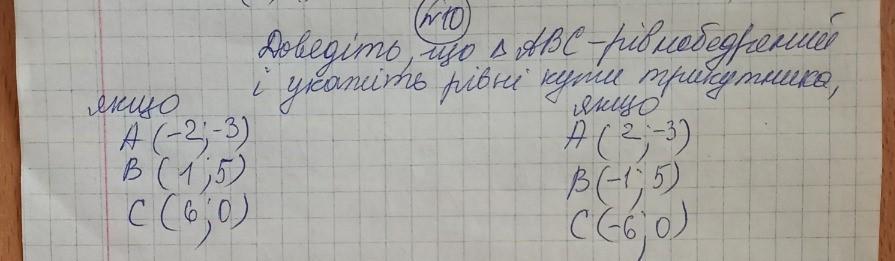 №10
Доведіть, що △ ABC - рівнобедрений
і укажіть рівні кути трикутника,
якщо
A (-2; -3)
B (1; 5)
C (6; 0)
якщо
A (2; -3)
B (-1; 5)
C (-6; 0)